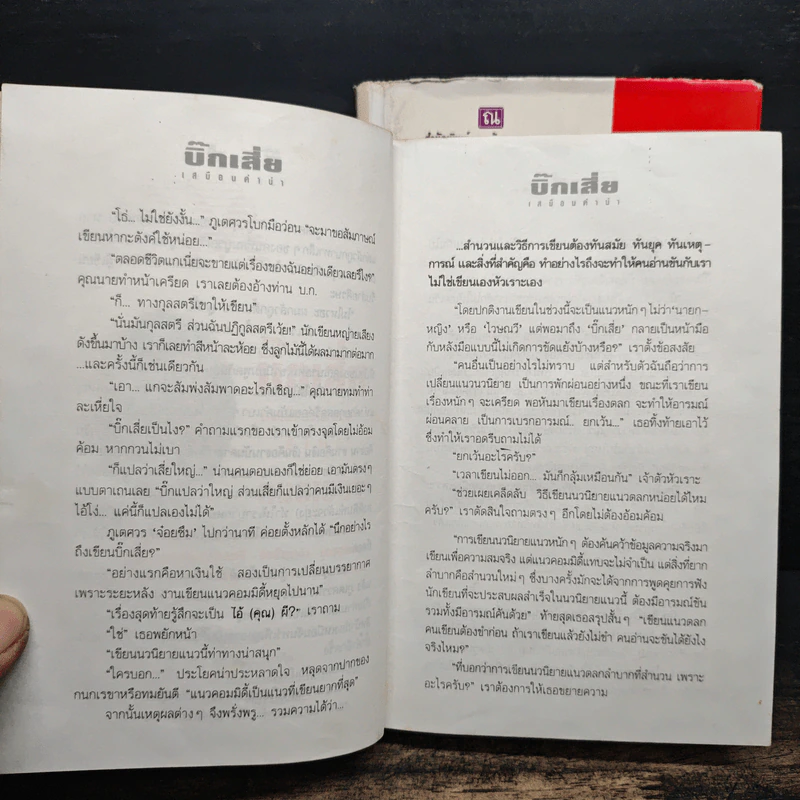 บิ๊กเสี่ย
เสมือนคำนำ
“โธ่... ไม่ใช่ยังงั้น...” ภูเตศวรโบกมือว่อน “จะมาขอสัมภาษณ์
เขียนหากะตังค์ใช้หน่อย...”
“ตลอดชีวิตแกเนี่ยจะขายแต่เรื่องของฉันอย่างเดียวเลยรึไง?”
คุณนายทำหน้าเครียด เราเลยต้องอ้างท่าน บ.ก.
“ก็... ทางกุลสตรีเขาให้เขียน”
“นั่นมันกุลสตรี ส่วนฉันปฏิกูลสตรีเว้ย!” นักเขียนหญ่ายเสียง
ดังขึ้นมาบ้าง เราก็เลยทำสีหน้าละห้อย ซึ่งลูกไม้นี้ได้ผลมามากต่อมาก
...และครั้งนี้ก็เช่นเดียวกัน
“เอา... แกจะสัมพ่งสัมพาดอะไรก็เชิญ...” คุณนายทมทำท่า
ละเหี่ยใจ
“บิ๊กเสี่ยเป็นไง?” คำถามแรกของเราเข้าตรงจุดโดยไม่อ้อม
ค้อม หากกวนไม่เบา
“ก็แปลว่าเสี่ยใหญ่...” น่านคนตอบเองก็ใช่ย่อย เอามันตรงๆ
แบบดาเถนเลย “บิ๊กแปลว่าใหญ่ ส่วนเสี่ยก็แปลว่าคนมีเงินเยอะๆ
ไอ้โง่... แค่นี้ก็แปลเองไม่ได้”
ภูเตศวร ‘จ๋อยซึม’ ไปกว่านาที ค่อยตั้งหลักได้ “นึกอย่างไร
ถึงเขียนบิ๊กเสี่ย?”
“อย่างแรกคือหาเงินใช้ สองเป็นการเปลี่ยนบรรยากาศ
เพราะระยะหลัง งานเขียนแนวคอมมิดี้หยุดไปนาน”
“เรื่องสุดท้ายรู้สึกจะเป็น ไอ้ (คุณ) ผี?” เราถาม
“ใช่” เธอพยักหน้า
“เขียนนวนิยายแนวนี้ท่าทางน่าสนุก”
“ใครบอก...” ประโยคน่าประหลาดใจ หลุดจากปากของ
กนกเรขาหรือทมยันตี “แนวคอมมิดี้เป็นแนวที่เขียนยากที่สุด”
จากนั้นเหตุผลต่างๆ จึงพรั่งพรู... รวมความได้ว่า...
ณ
บิ๊กเสี่ย
เสมือนคำนำ
...สำนวนและวิธีการเขียนต้องทันสมัย ทันยุค ทันเหตุ –
การณ์ และสิ่งที่สำคัญคือ ทำอย่างไรถึงจะทำให้คนอ่านขันกับเรา
ไม่ใช่เขียนเองหัวเราะเอง
“โดยปกติงานเขียนในช่วงนี้จะเป็นแนวหนักๆ ไม่ว่า ‘นายก-
หญิง’ หรือ ‘ไวษณวี’ แต่พอมาถึง ‘บิ๊กเสี่ย’ กลายเป็นหน้ามือ
กับหลังมือแบบนี้ไม่เกิดการขัดแย้งบ้างหรือ?” เราตั้งข้อสงสัย
“คนอื่นเป็นอย่างไรไม่ทราบ แต่สำหรับตัวฉันถือว่าการ
เปลี่ยนแนวนวนิยาย เป็นการพักผ่อนอย่างหนึ่ง ขณะที่เราเขียน
เรื่องหนักๆ จะเครียด พอหันมาเขียนเรื่องตลก จะทำให้อารมณ์
ผ่อนคลาย เป็นการเบรกอารมณ์.. ยกเว้น...” เธอทิ้งท้ายเอาไว้
ซึ่งทำให้เราอดรีบถามไม่ได้
“ยกเว้นอะไรครับ?”
“เวลาเขียนไม่ออก... มันก็กลุ้มเหมือนกัน” เจ้าตัวหัวเราะ
“ช่วยเผยเคล็ดลับ วิธีเขียนนวนิยายแนวตลกหน่อยได้ไหม
ครับ?” เราตัดสินใจถามตรงๆ อีกโดยไม่ต้องอ้อมค้อม
“การเขียนนวนิยายแนวหนักๆ ต้องค้นคว้าข้อมูลความจริงมา
เขียนเพื่อความสมจริง แต่แนวคอมมิดี้แทบจะไม่จำเป็น แต่สิ่งที่ยาก
ลำบากคือสำนวนใหม่ๆ ซึ่งบางครั้งมักจะได้จากการพูดคุยการฟัง
นักเขียนที่จะประสบผลสำเร็จในนวนิยายแนวนี้ ต้องมีอารมณ์ขัน
รวมทั้งมีอารมณ์คันด้วย” ท้ายสุดเธอสรุปสั้นๆ “เขียนแนวตลก
คนเขียนต้องขำก่อน ถ้าเราเขียนแล้วยังไม่ขำ คนอ่านจะขันได้ยังไง
จริงไหม?”
“ที่บอกว่าการเขียนนวนิยายแนวตลกลำบากที่สำนวน เพราะ
อะไรครับ?” เราต้องการให้เธอขยายความ